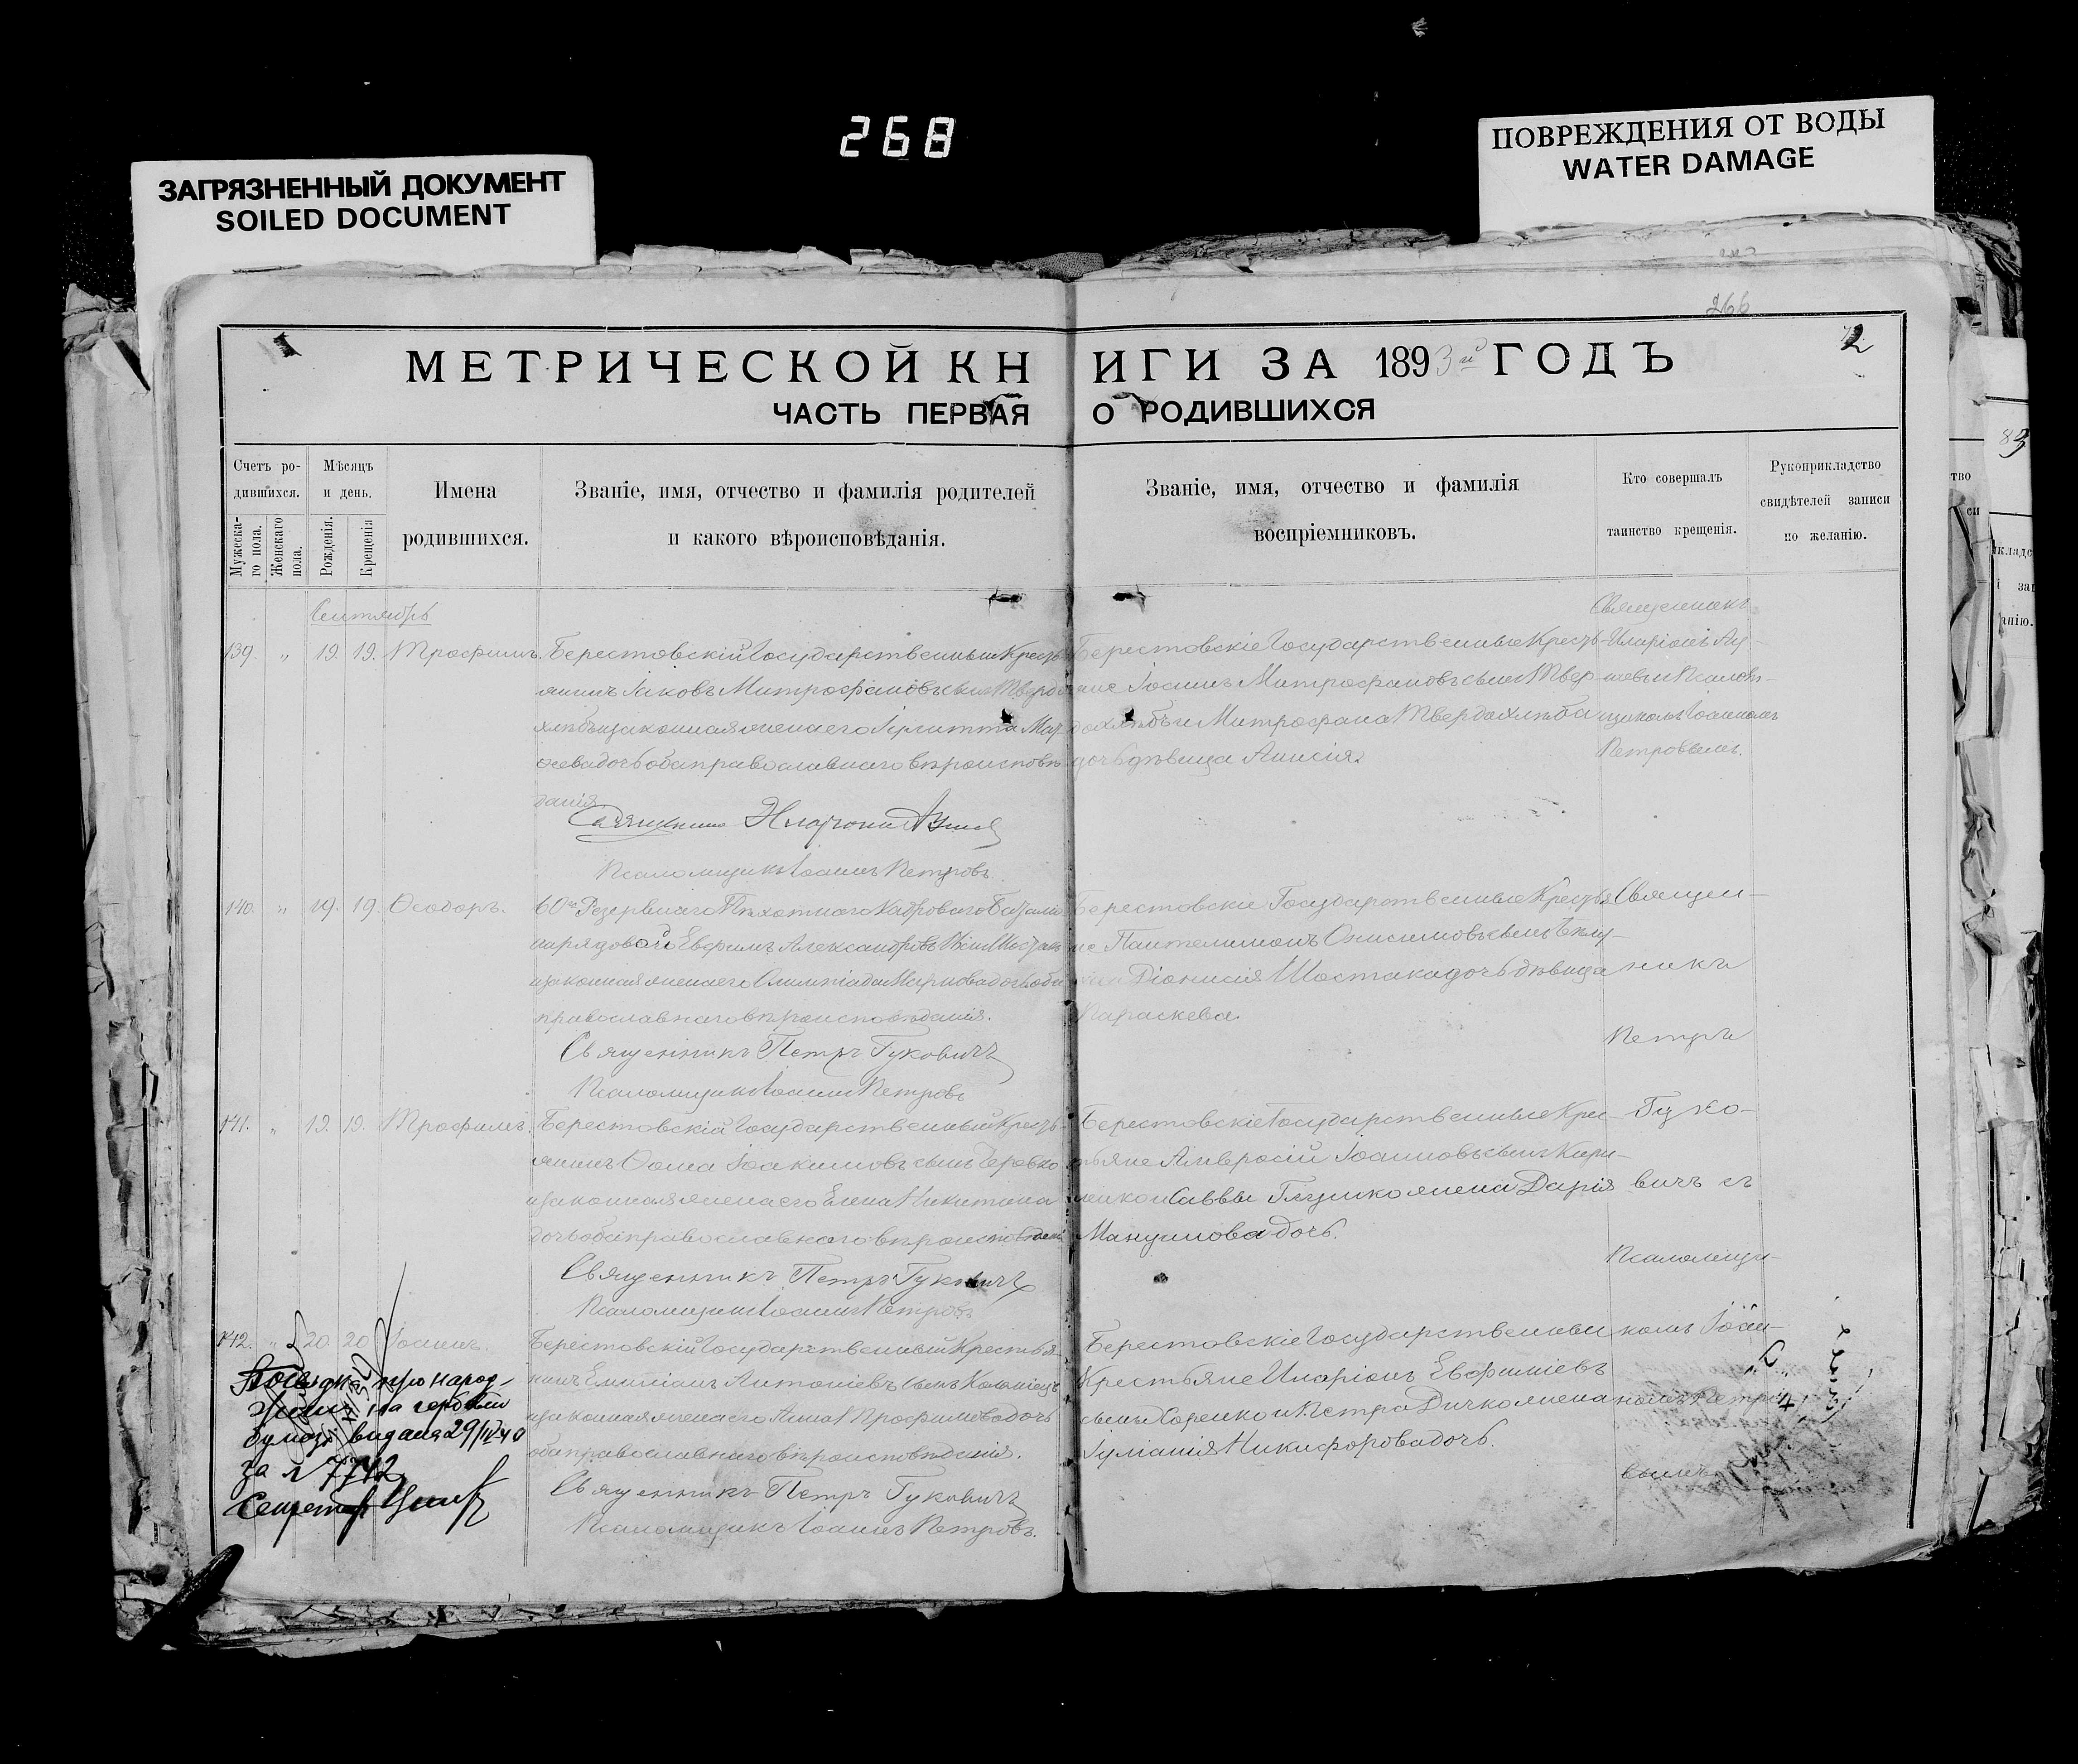 268
ЗАГРЯЗНЕННЫЙ ДОКУМЕНТ
SOILED DOCUMENT
ПОВРЕЖДЕНИЯ ОТ ВОДЫ
WATER DAMAGE
266
2
МЕТРИЧЕСКОЙ КНИГИ ЗА 1893й ГОДЪ
ЧАСТЬ ПЕРВАЯ О РОДИВШИХСЯ
Счетъ ро-
дившихся.
Мужеска-
го пола.
Женскаго
пола.
Мѣсяцъ
и день.
Рожденія.
Крещенія
Имена
родившихся.
Званіе, имя, отчество и фамилія родителей
и какого вѣроисповѣданія.
Званіе, имя, отчество и фамилія
воспріемниковъ.
Кто совершалъ
таинство крещенія.
Рукоприкладство
свидѣтелей записи
по желанію.
Сентябрь
139. " 19. 19. Трофимъ.
Берестовскій Государственный Кресть-
янинъ Іаковъ Митрофановъ сынъ Твердо-
хлѣбъ и законная жена его Іулитта
дочь оба православнаго вѣроисповѣ-
данія
Священникъ Иларіонъ
Псаломщикъ Іоаннъ Петровъ.
Берестовскіе Государственные Кресть-
яне Іоаннъ Митрофановъ сынъ Твер-
дохлѣбъ и Митрофана Твердохлѣба
дочь дѣвица Анисія.
Священникъ
Иларіонъ
Псалом-
щикомъ Іоанномъ
Петровымъ.
140. " 19. 19. Ѳеодоръ.
60го Резервнаго Пѣхотнаго Кадроваго Баталіо-
на рядовой Евфимъ Александровъ сынъ Шостакъ
и законная жена его Олимпіада Маркова дочь оба
православнаго вѣроисповѣданія.
Священникъ Петръ Гуковичъ
Псаломщикъ Іоаннъ Петровъ
Берестовскіе Государственные Кресть-
не Пантелимонъ Онисимовъ сынъ
Діонисія Шостака дочь дѣвица
Параскева.
Священ-
никъ
Петръ
Гуко-
вичъ съ
Псаломщи-
комъ Іоан-
номъ Петро-
вымъ
141. " 19. 19. Трофимъ.
Берестовскій Государственный Кресть-
янинъ Ѳома Іоакимовъ сынъ Черевко
и законная жена его Елена Никитина
дочь оба православнаго вѣроисповѣданія
Священникъ Петръ Гуковичъ
Псаломщикъ Іоаннъ Петровъ
Берестовскіе Государственные Крес-
тьяне Амвросій Іоанновъ сынъ Кири-
ленко и Саввы Глушко жена Дарія
дочь.
142. " 20. 20 Іоаннъ.
Берестовскій Государственный Крестья-
нинъ Емиліанъ Антоніевъ сынъ Коломіецъ
и законная жена его Анна Трофимова дочь
оба православнаго вѣроисповѣданія.
Священникъ Петръ Гуковичъ
Псаломщикъ Іоаннъ Петровъ.
Берестовскіе Государственные
Крестьяне Иларіонъ Евфиміевъ
сынъ и Петра Дичко жена
Іуліанія Никифорова дочь.
про народ-
на гербовій
бумазі видана 29/IV 40
за № 7742
Секретар